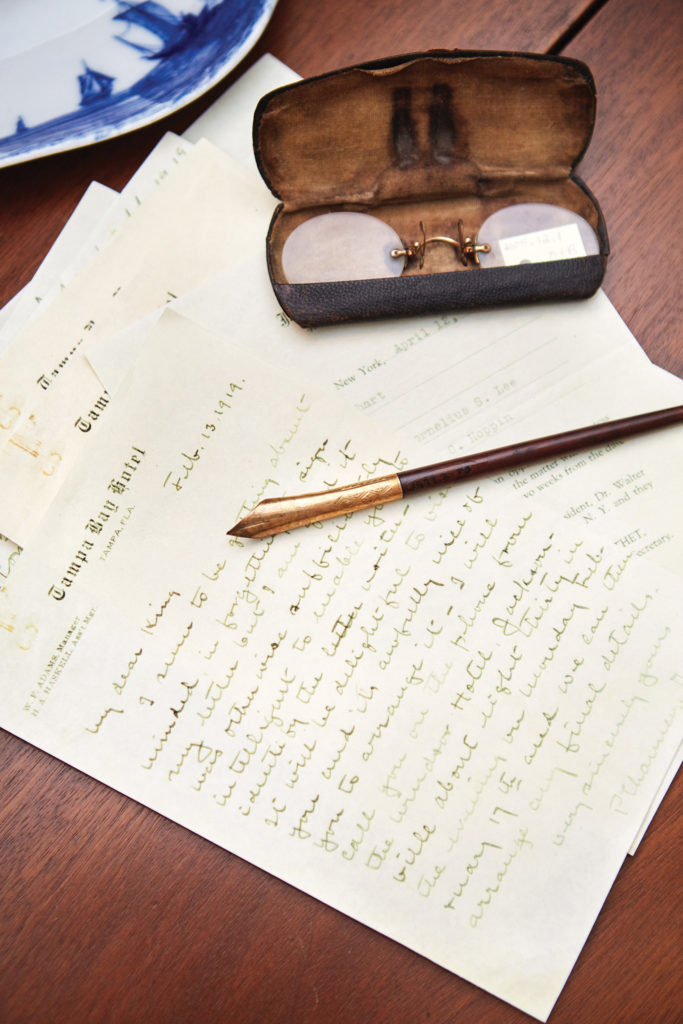 Tampa Bay Hotel
TAMPA, FLA.
W. F. ADAMS, MANAGER
H. A. HASKELL, ASST. MGR.
Feb. 13 1919.
My dear King
I seem to be getting about
minded in forgetting to sign
my letter but I am glad it
was otherwise sufficiently
intelligent to enable you to
identify the letter writer.
It will be delightful to
you and its awfully nice of
you to arrange it - I will
call you on the phone from
the Windsor Hotel, Jackson-
ville about eight thirty in
the evening on Monday Feb-
ruary 17th and we can then
arrange any final details.
very sincerely yours
New York, April 12,
Cornelius S. Lee
C. Hoppin
the matter
wo weeks from the
sident, Dr. Walter
N. Y. and they
HET.
Secretary.
Tampa
Tam
19